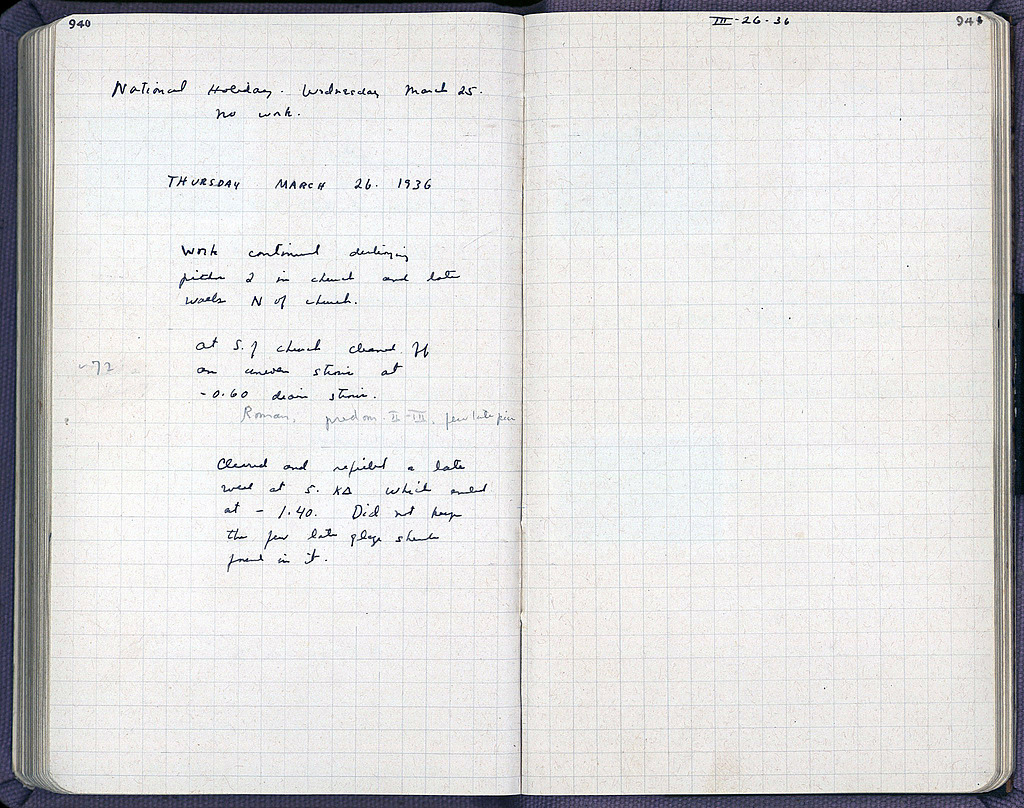 940
National Holiday. Wednesday March 25.
no work.
THURSDAY MARCH 26. 1936
Work continued
2 in church and late
walls N of church.
at S. of church cleared off
an uneven strosis at
-0.60 strosis.
v-72
Roman, predom. II-III, few late
Cleared and refilled a late
well at S. KΔ which ended
at - 1.40. Did not keep
the few late glaze sherds
found in it.
III-26-36
941